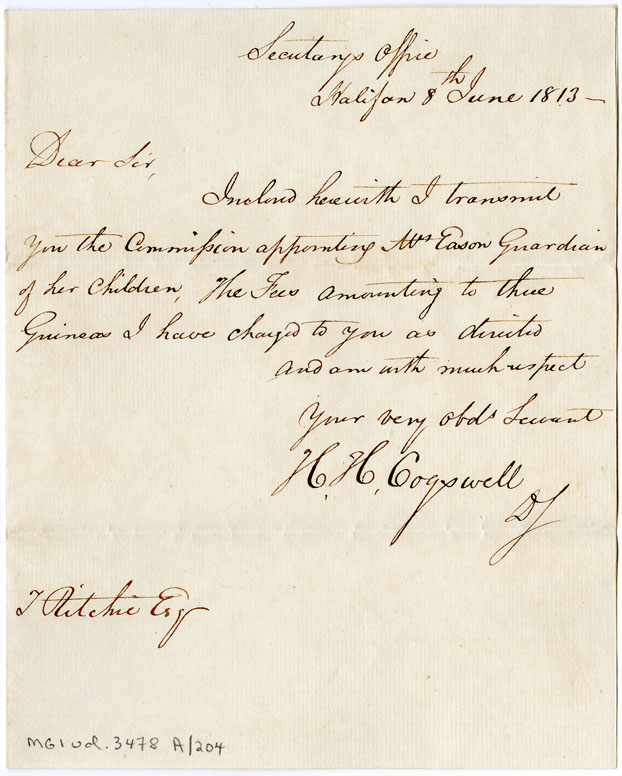 Secretarys Office
Halifax 8th June 1813 —
Dear Sir,
Inclosed herewith I transmit
you the Commission appointing Mrs Eason Guardian
of her Children, The Fees amounting to three
Guineas I have charged to you as directed
and am with much respect
Your very obdt Servant
H. H. Cogswell
DS
T Ritchie Esq
MG1 vol. 3478 A/204